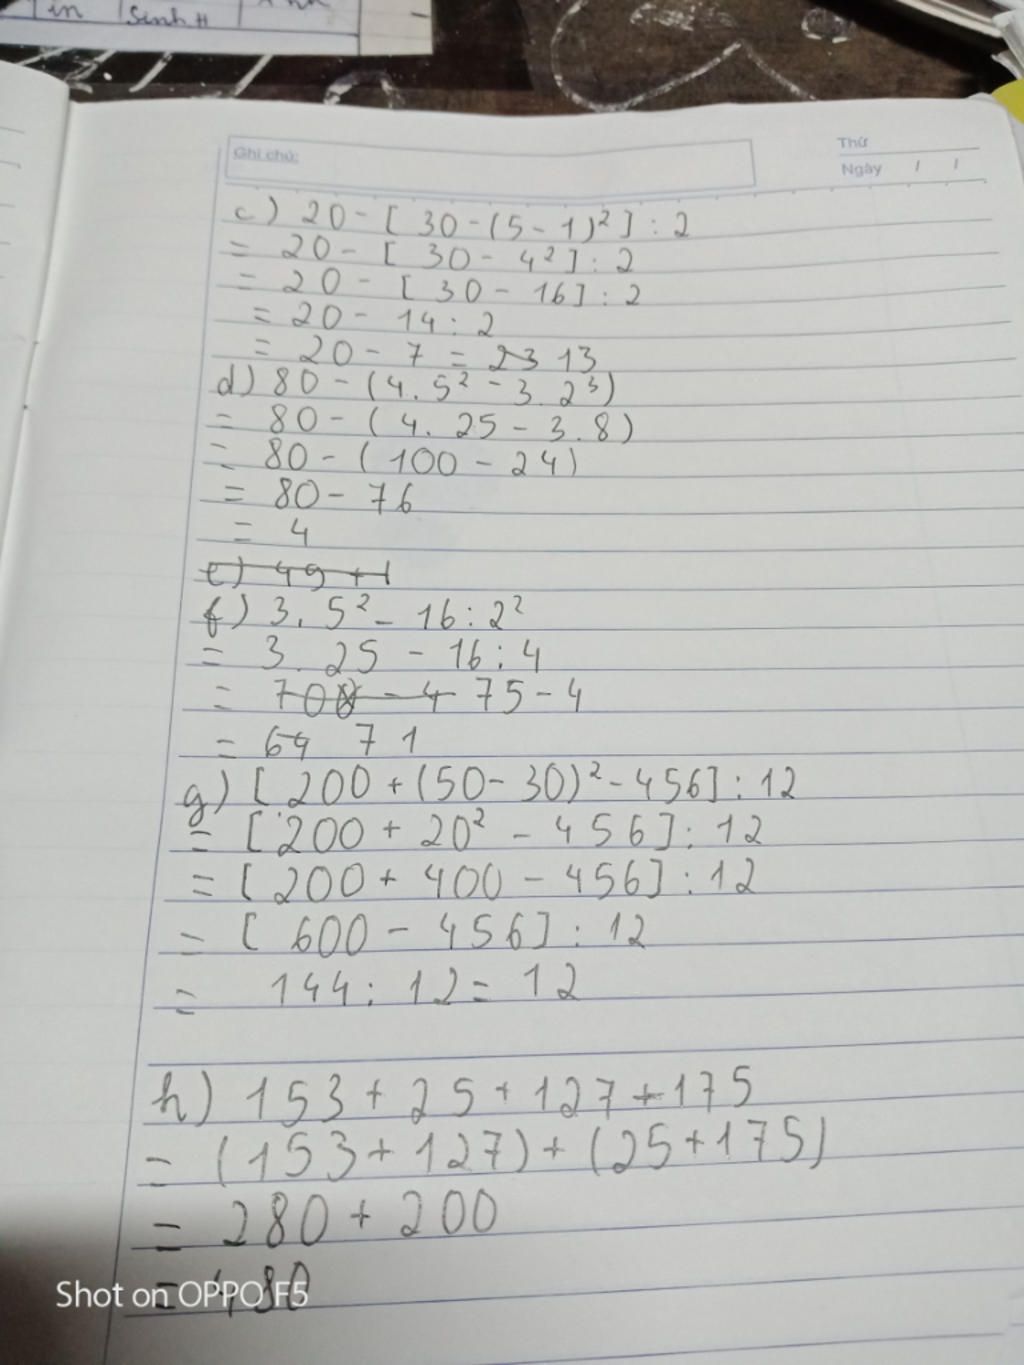 in Sinh H
Ghi chú:
Thứ
Ngày / /
c) 20 - [ 30 - (5 - 1)² ] : 2
= 20 - [ 30 - 4² ] : 2
= 20 - [ 30 - 16 ] : 2
= 20 - 14 : 2
= 20 - 7 = 23 13
d) 80 - (4. 5² - 3. 2³)
= 80 - ( 4. 25 - 3. 8 )
= 80 - ( 100 - 24 )
= 80 - 76
= 4
e) 49 + 1
f) 3. 5² - 16 : 2²
= 3. 25 - 16 : 4
= 700 - 4 75 - 4
= 64 71
g) [ 200 + (50 - 30)² - 456 ] : 12
= [ 200 + 20² - 456 ] : 12
= [ 200 + 400 - 456 ] : 12
= [ 600 - 456 ] : 12
= 144 : 12 = 12
h) 153 + 25 + 127 + 175
= (153 + 127) + (25 + 175)
= 280 + 200
= 480
Shot on OPPO F5